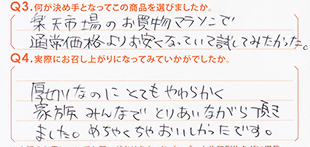 Q3.何が決め手となってこの商品を選びましたか。
楽天市場のお買物マラソンで
通常価格よりお安くなっていて試してみたかった。
Q4.実際にお召し上がりになってみていかがでしたか。
厚切りなのに とてもやわらかく
家族 みんなで とりあいながら 頂き
ました。めちゃくちゃ おいしかったです。